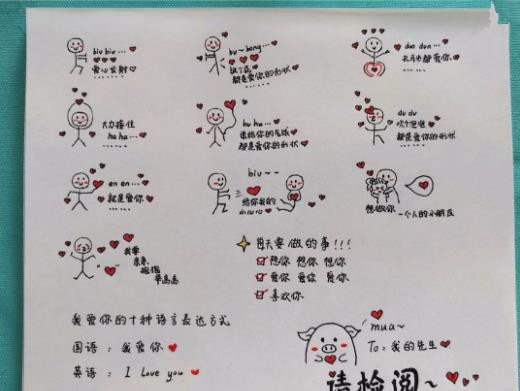 biu biu...
爱心发射
bu~beng
放个屁
都是爱你的形状
dun dun...
孔夫也都爱你
大力接住
ha ha...
hu hu...
送给你的气球
都是爱你的形状
du du
吹个泡泡
都是爱你的形状
en en...
就是爱你
biu~~
给你我的
小心心
想做你
一个人的小朋友
我要
亲亲
抱抱
举高高
每天要做的事!!!
想你 想你 想你
爱你 爱你 爱你
喜欢你
我爱你的十种语言表达方式
国语:我爱你
英语:I love you
mua~
To:我的先生
请检阅~